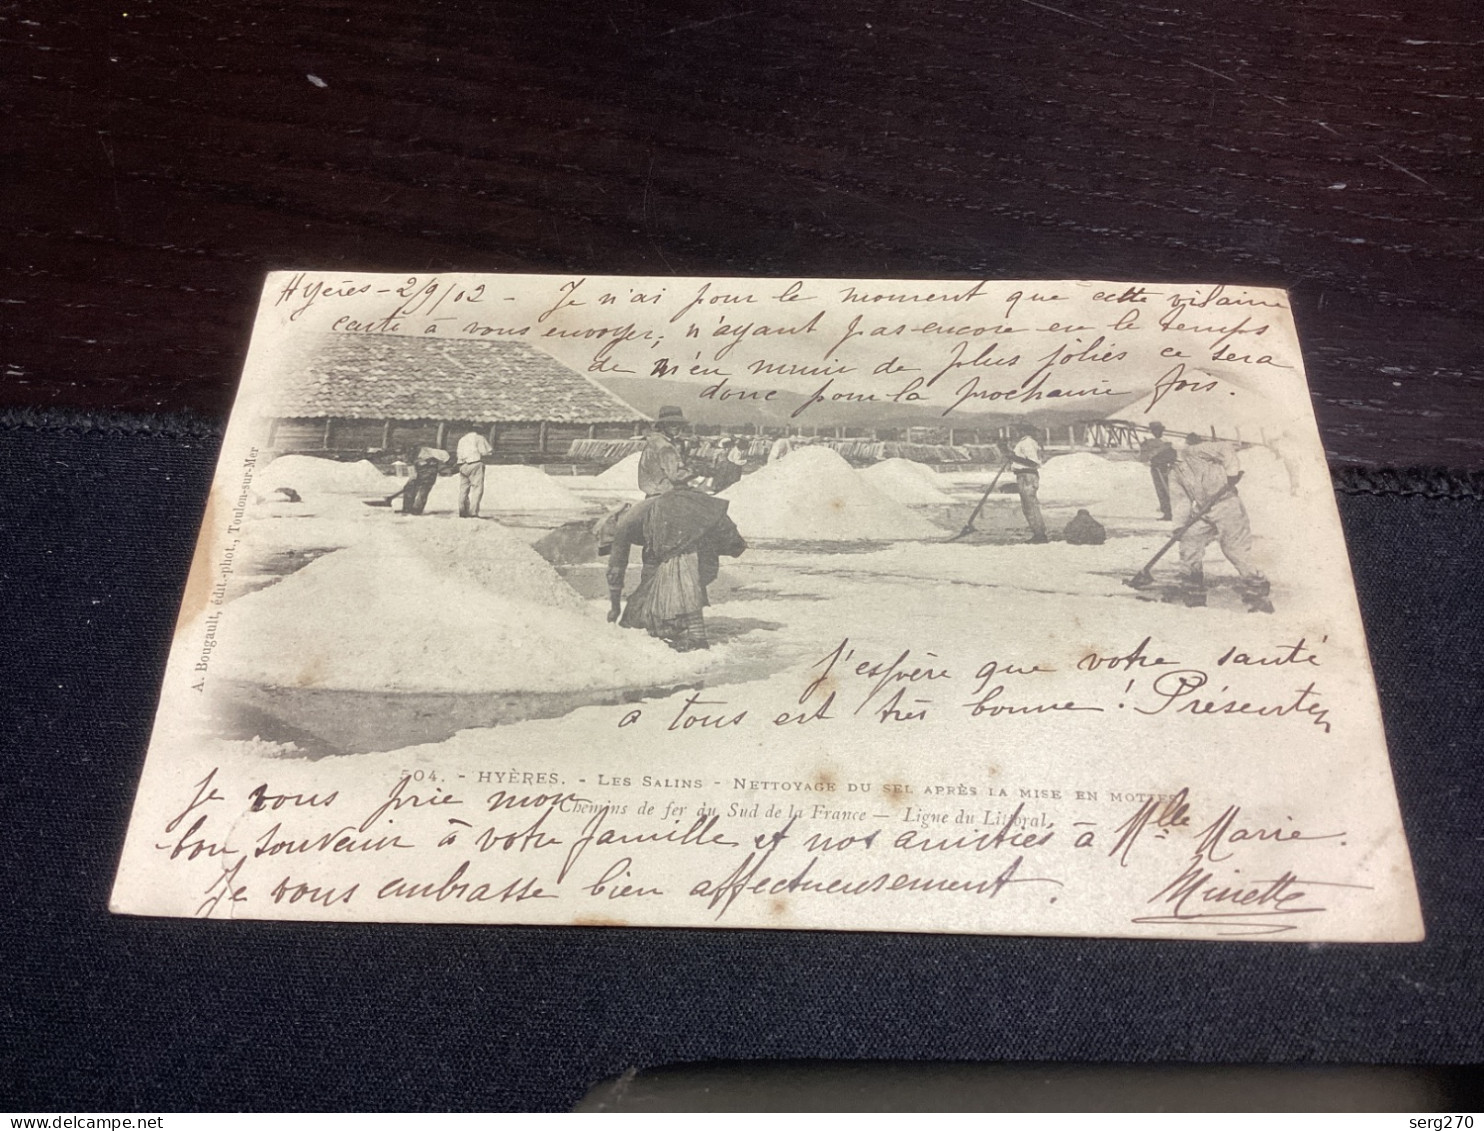 Hyères - 2/9/02 - Je n'ai pour le moment que cette vilaine
carte à vous envoyer; n'ayant pas encore eu le temps
de m'en munir de plus jolies ce sera
donc pour la prochaine fois.
A. Bougault, édit.-phot., Toulon-sur-Mer
J'espère que votre santé
a tous est très bonne ! Présentez
504. - HYÈRES. - LES SALINS - NETTOYAGE DU SEL APRÈS LA MISE EN MOTTES
Chemins de fer du Sud de la France — Ligne du Littoral.
je vous prie mon
bon souvenir à votre famille et nos amitiés à Mlle Marie.
Je vous embrasse bien affectueusement.
Minette
delcampe.net
serg270